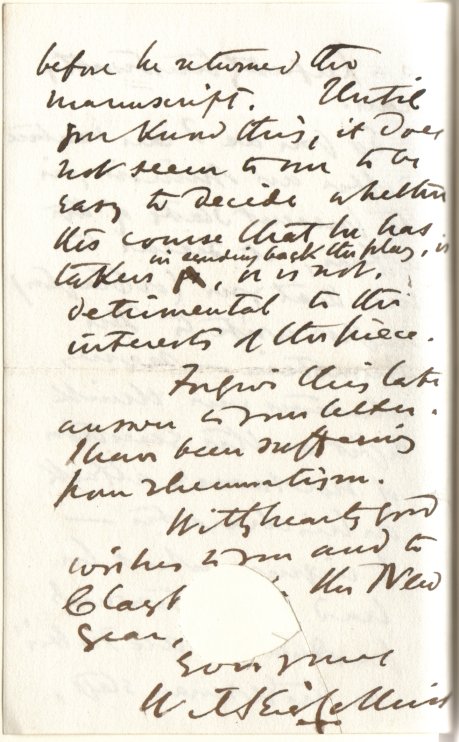 before he returned the
manuscript. Until
you know this, it does
not seem to me to be
easy to decide whether
the course that he has
in sending back the play, is
taken, or is not,
detrimental to the
interests of the piece.
Forgive this late
answer to your letter.
I have been suffering
from rheumatism.
With hearty good
wishes to you and to
the New
Year,
Yours
Wilkie Collins